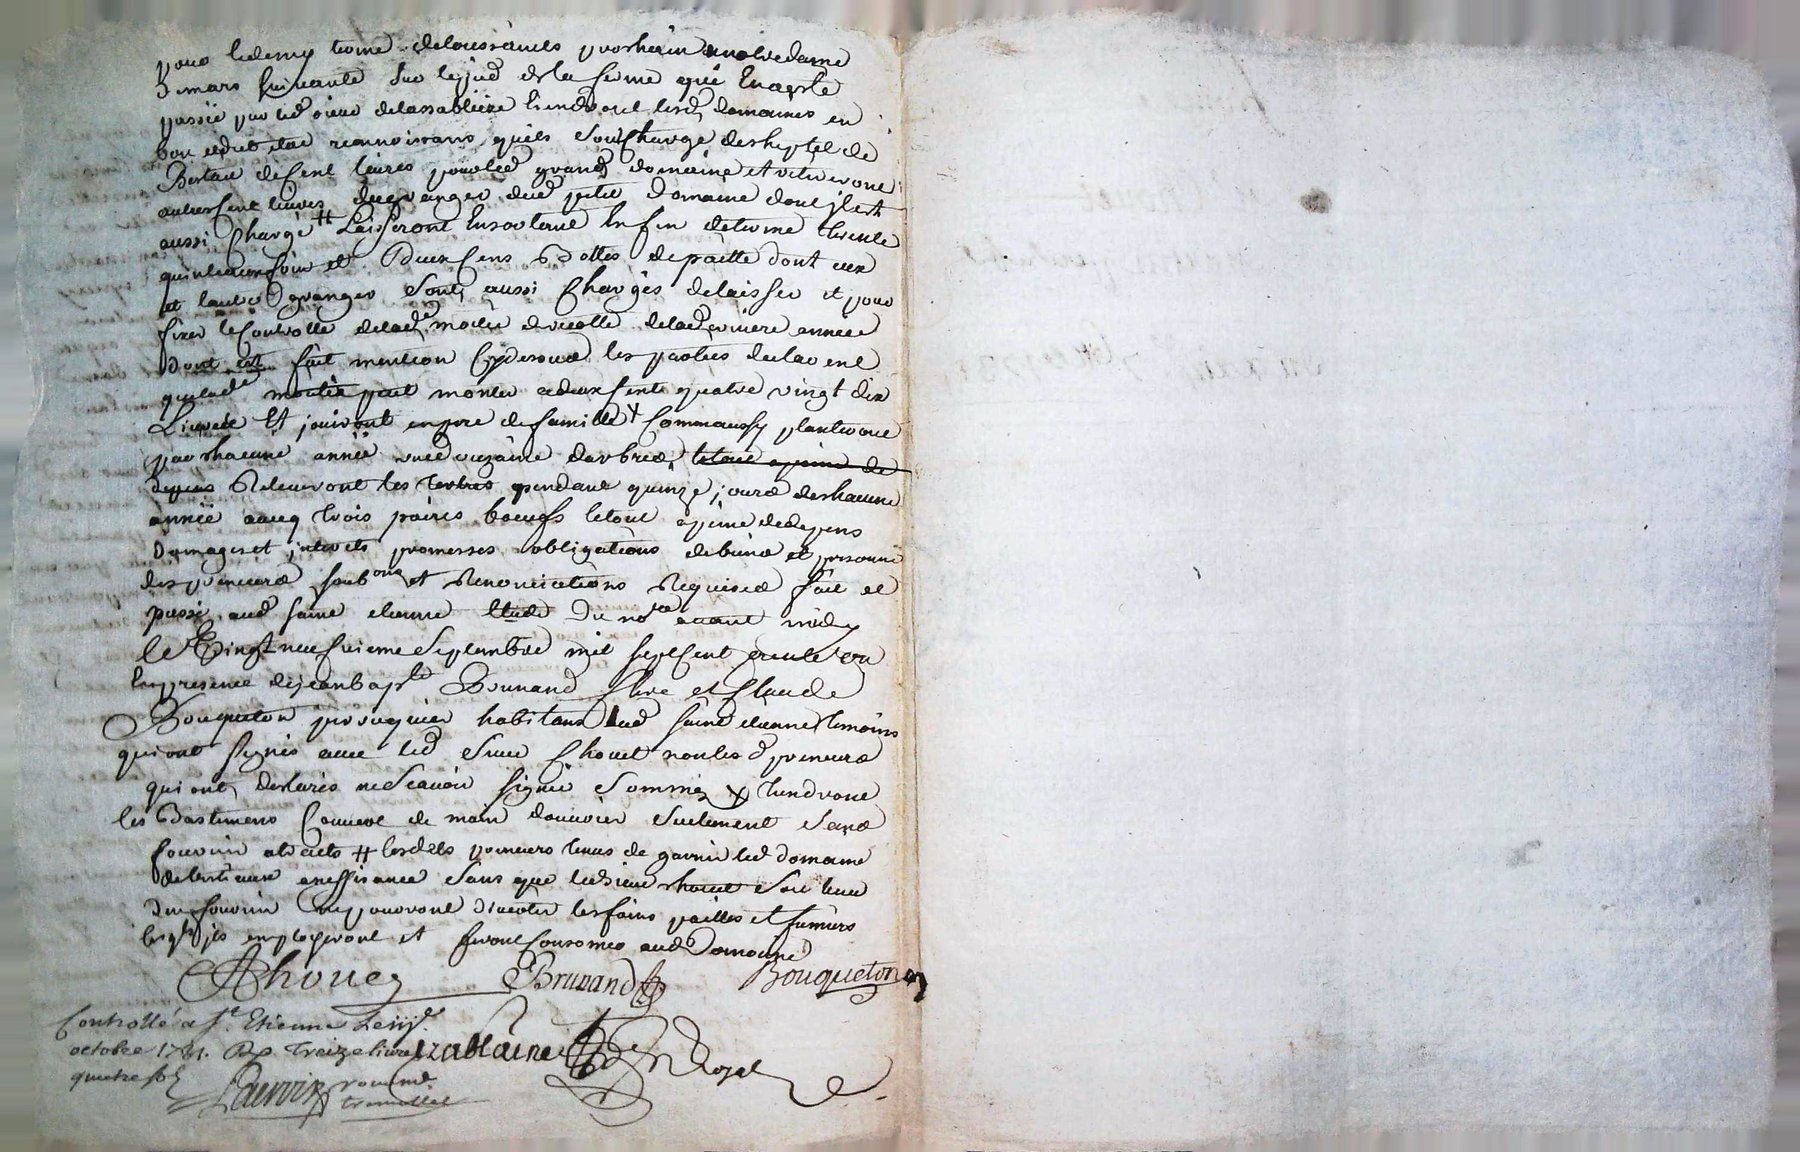 pour ledemy terme delaussaincts prochain a nostredame
de mars suivante sur le pied de la ferme que en a esté
passée par led sieur delassabliere tiendront lesd domaines en
bon et dub etat reconnoissans quils sont chargé de cheptel de
Bestau de cent livres pour led grand domaine et retireront
autres cent livres du granger dud petit domaine dont il est
aussi chargé # Laisseront en sortant en fin de terme trente
quinteaux foin et deux cens Bottes de paille dont eux
et lautre granger sont aussi Chargés de laisser et pour
fixer le Controlle delad moitié de recolte delad derniere année
dont est fait mention cy dessus les parties declarent
que lad moitié peut monter a deux cents quatre vingt dix
Livres Et jouiront en pere de famille + Comme aussy planteront
par chacune année une douzaine darbres, le tout a peine de
depens Releveront les terres pendant quinze jours de chacune
année avec trois paires boeufs le tout a peine de depens
domages et interets promesses obligations de biens et personne
des preneurs soubons et Renonciations Requises fait et
passé aud saint etienne Etude du nore avant midy
le Vingt neufvieme Septembre mil sept cent trente un
en presence de jean bapte Brunand Clerc et Claude
Bouqueton perruquier habitans aud saint etienne temoins
qui ont signés avec led sieur Chovet non lesd preneurs
qui ont declarés ne scavoir signer sommés + tiendront
les Bastimens Couvert de main douvrier seulement sans
fournir attraits # lesdits preneurs tenus de garnir led domaine
de bestiaux en suffisance sans que led sieur chovet soit tenu
den fournir ne pourront divertir les foins pailles et fumiers
lesqls ils employeront et feront consomer aud Domaine
Chouet Brunand Bouqueton
Controllé a St. Etienne Le iije.
octobre 1731. R Treize livres
quatre sols